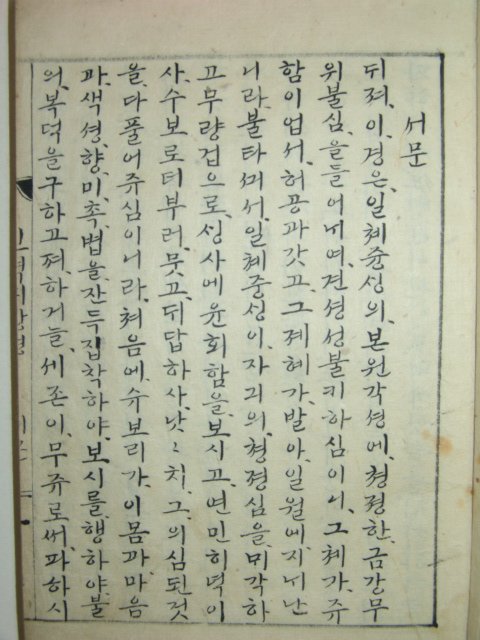 서문
뒤져、이、경은、일쳬즁성의、본원각셩에、쳥졍한、금강무
위불심、을들어내여、견셩성불키하심이니、그쳬가、쥬
함이업서、허공과갓고、그、졔혜가、발아、일월에、지내난
니라、불타께서、일쳬중성이、자긔의、쳥졍심을、믜각하
고무량겁으로、싱사에、윤회함을、보시고、연민히덕이
사、수보로터부러、뭇고、뒤답하사、낫〻치、그、의심된것
을、다풀어쥬심이니라、쳐음에、슈보리가、이몸과、마음
과、색셩、향、미、촉、볍을、잔득집착하야、보시를、행하야、불
의、복덕을구하고져、하거늘、세존이、무쥬로써、파하시